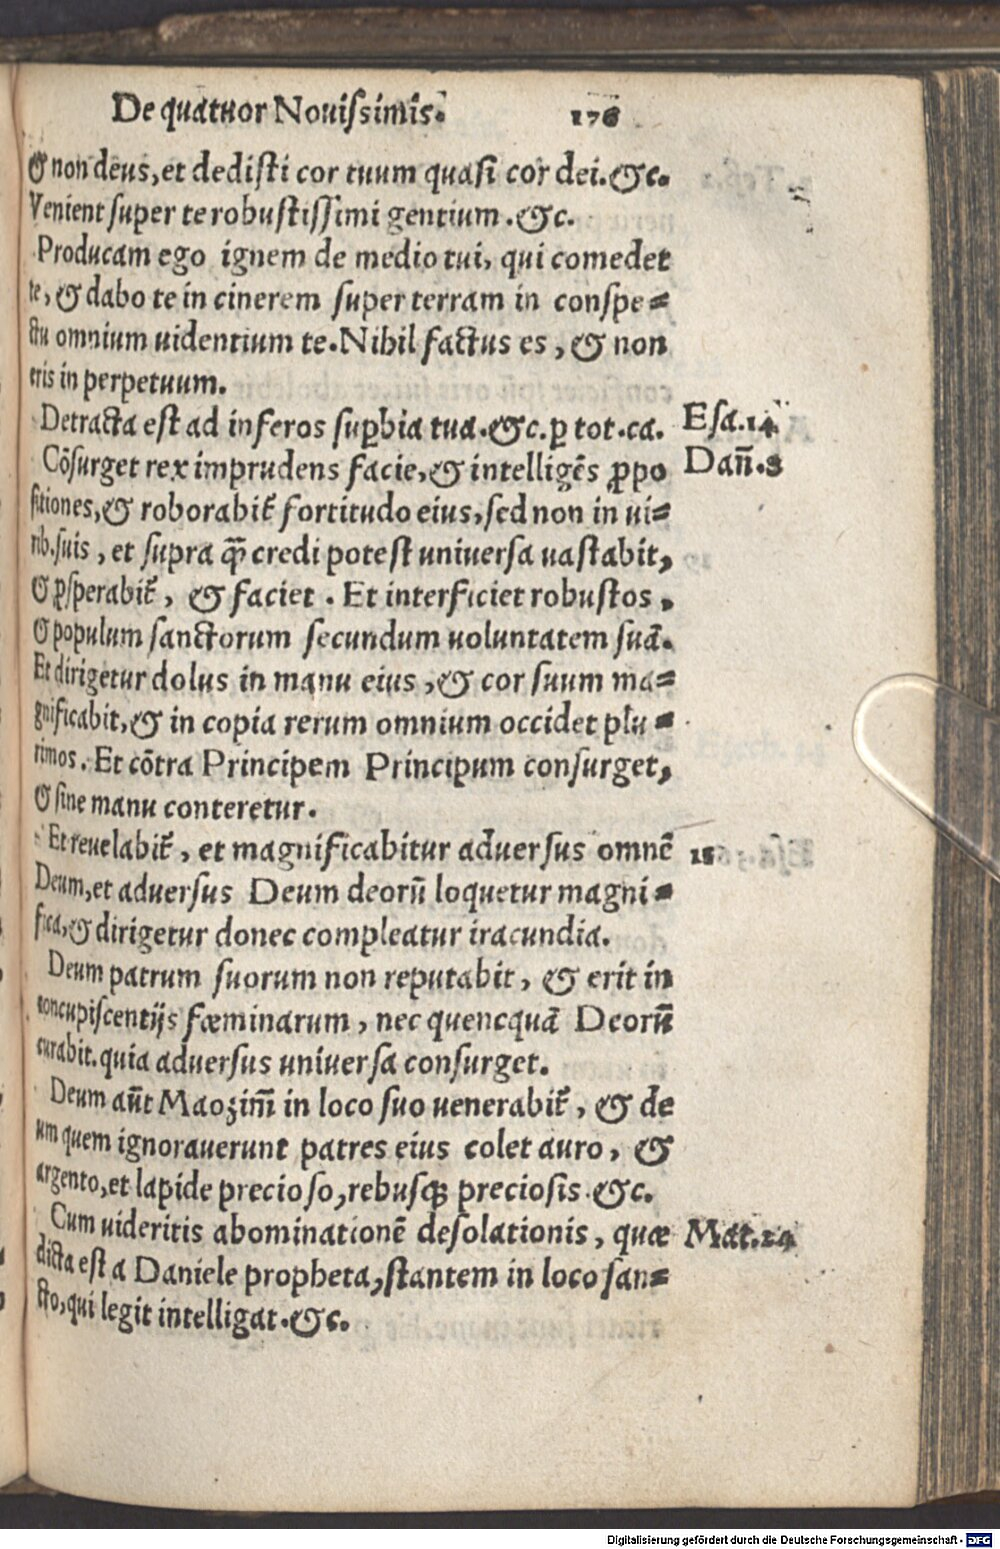 De quatuor Nouissimis. 176
& non deus, et dedisti cor tuum quasi cor dei. &c.
Venient super te robustissimi gentium. &c.
Producam ego ignem de medio tui, qui comedet
te, & dabo te in cinerem super terram in conspe=
ctu omnium uidentium te. Nihil factus es, & non
eris in perpetuum.
Detracta est ad inferos suꝑbia tua. &c. ꝑ tot. ca. Esa. 14
Cōsurget rex imprudens facie, & intelligēs ꝓpo Dañ. 8
sitiones, & roborabit᷑ fortitudo eius, sed non in ui=
rib. suis, et supra q̄̄ credi potest universa uastabit,
& ꝓsperabit᷑, & faciet. Et interficiet robustos,
& populum sanctorum secundum uoluntatem suā.
Et dirigetur dolus in manu eius, & cor suum ma=
gnificabit, & in copia rerum omnium occidet plu=
rimos. Et cōtra Principem Principum consurget,
& sine manu conteretur.
Et reuelabit᷑, et magnificabitur adversus omnē 11
Deum, et adversus Deum deorū loquetur magni=
fica, & dirigetur donec compleatur iracundia.
Deum patrum suorum non reputabit, & erit in
concupiscentijs fœminarum, nec quencquā Deorū
curabit. quia adversus universa consurget.
Deum aūt Maozim̄ in loco suo uenerabit᷑, & de
um quem ignoraverunt patres eius colet auro, &
argento, et lapide precioso, rebusqꝫ preciosis. &c.
Cum uideritis abominationē desolationis, quæ Mat. 24
dicta est a Daniele propheta, stantem in loco san=
cto, qui legit intelligat. &c.
Digitalisierung gefördert durch die Deutsche Forschungsgemeinschaft - DFG